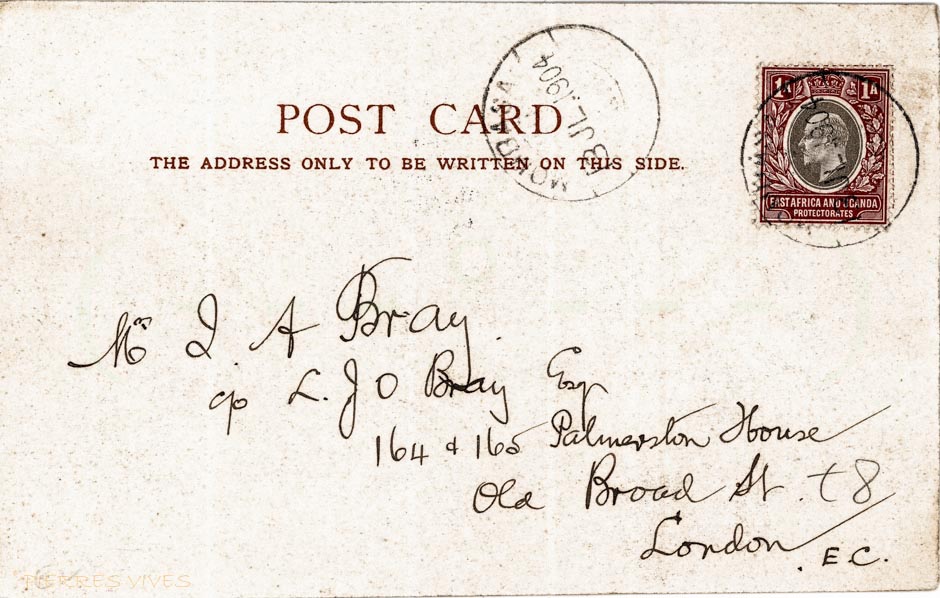 POST CARD
THE ADDRESS ONLY TO BE WRITTEN ON THIS SIDE.
MOMBASA
13 JL 1904
1A 1A
EAST AFRICA AND UGANDA
PROTECTORATES
Mrs I. A Bray
c/o L. J O Bray Esq
164 & 165 Palmerston House
Old Broad St. t8
London E.C.
PIERRES VIVES